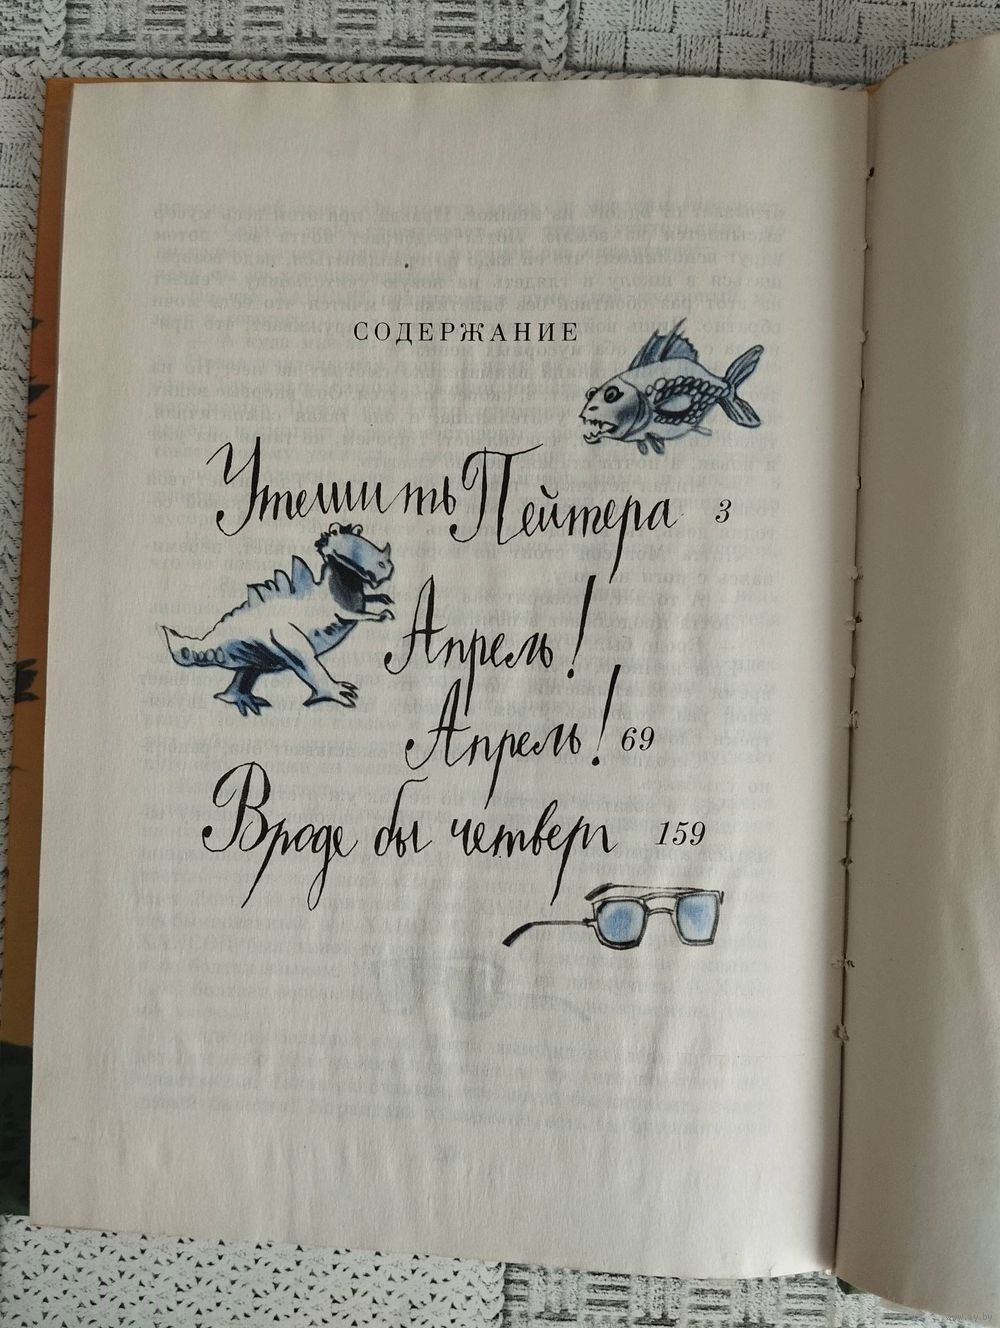 СОДЕРЖАНИЕ
Утешить Пейтера 3
Апрель!
Апрель! 69
Вроде бы четверг 159